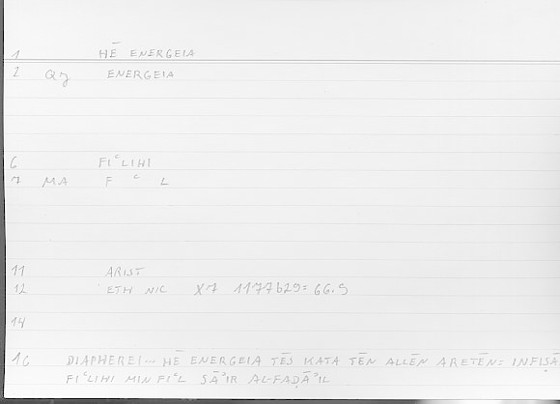 1 HĒ ENERGEIA
2 Qγ ENERGEIA
6 FIᶜLIHI
7 MA F ᶜ L
11 ARIST
12 ETH NIC X7 1177b29= 66.9
14
16 DIAPHEREI... HĒ ENERGEIA TĒS KATA TĒN ALLĒN ARETĒN: INFIṢĀ
FIᶜLIHI MIN FIᶜL SĀʾIR AL-FAḌĀʾIL